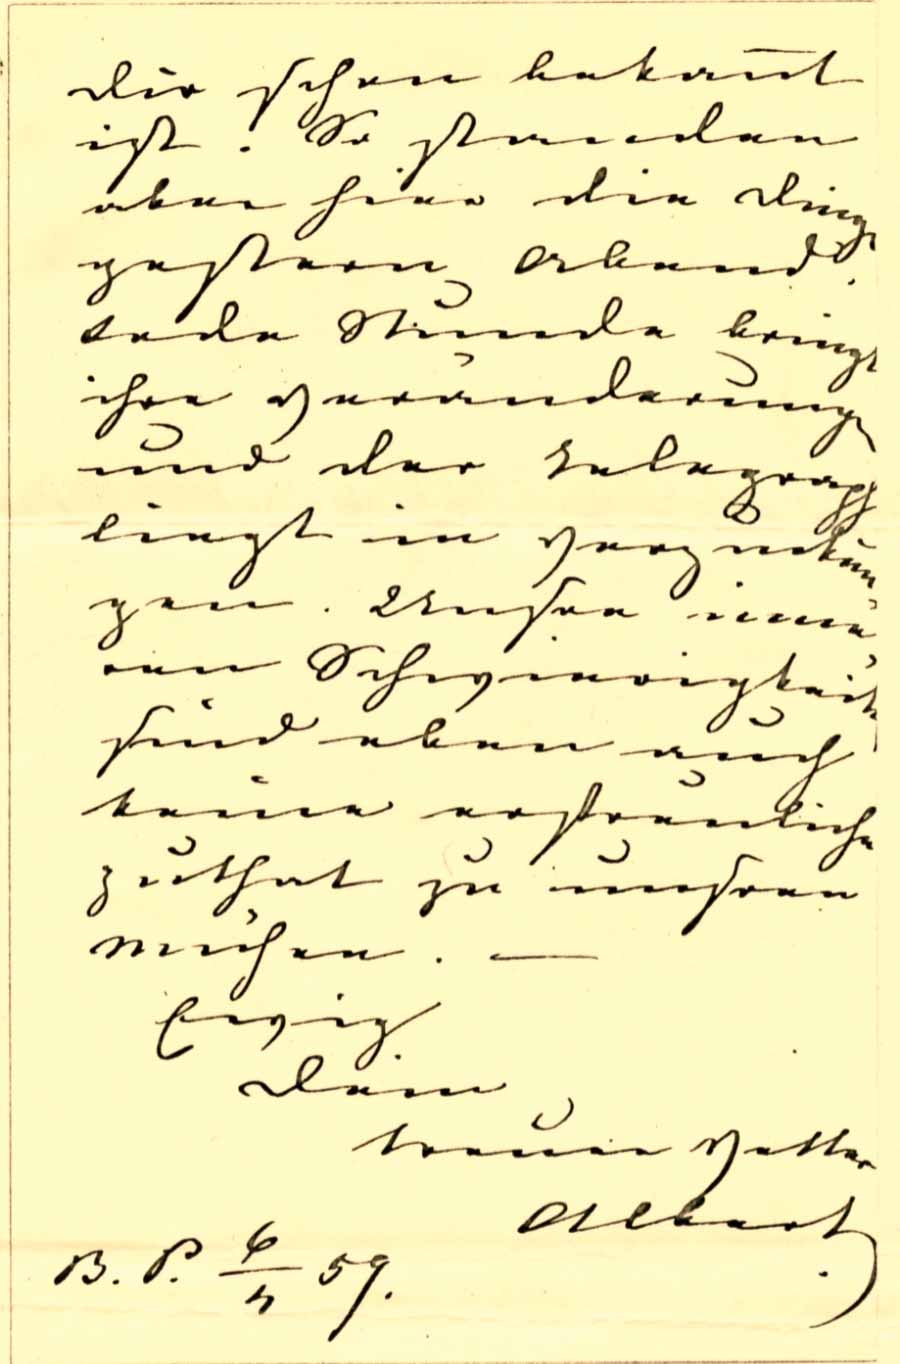 Dir schon bekan̅t
ist! So standen
aber hier die Dinge
gestern Abend.
Jede Stunde bringt
ihre Veränderunge
und der Telegraph
liegt in Verzückun-
gen. Unsere inne-
ren Schwierigkeiten
sind eben auch
keine erfreuliche
Zuthat zu unseren
Mühen. —
Ewig
Dein
treuer Vetter
Albert
B. P. 6/5 59.